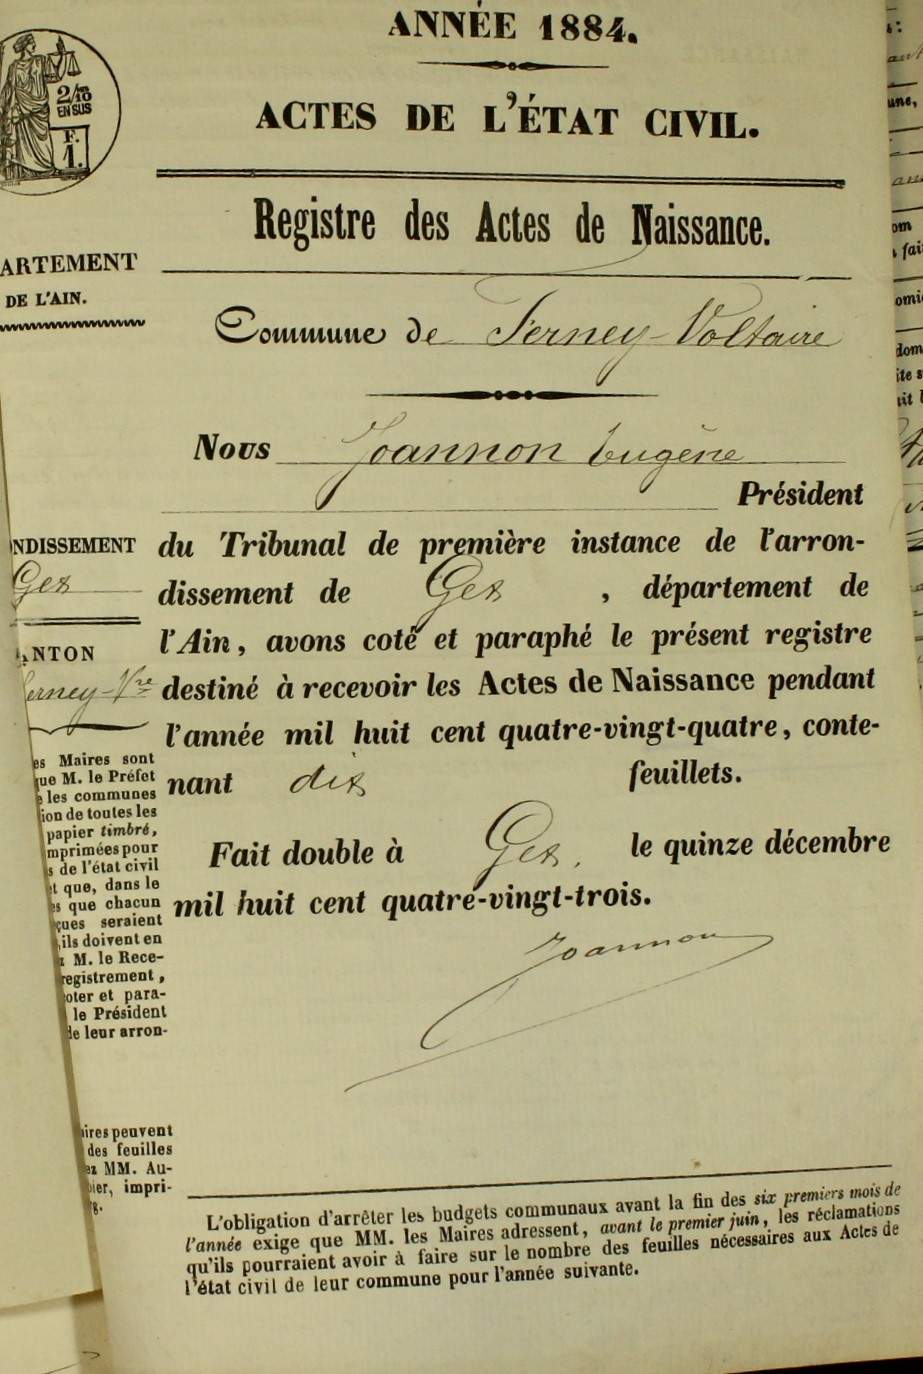 ANNÉE 1884.
ACTES DE L'ÉTAT CIVIL.
Registre des Actes de Naissance.
2/10
EN SUS
F.
1.
ARTEMENT
DE L'AIN.
Commune de Ferney-Voltaire
Nous Joannon Eugène
Président
du Tribunal de première instance de l'arron-
dissement de Gex, département de
l'Ain, avons coté et paraphé le présent registre
destiné à recevoir les Actes de Naissance pendant
l'année mil huit cent quatre-vingt-quatre, conte-
nant dix feuillets.
Fait double à Gex, le quinze décembre
mil huit cent quatre-vingt-trois.
Joannon
NDISSEMENT
Gex
ANTON
Ferney-Vre
es Maires sont
que M. le Préfet
les communes
ion de toutes les
papier timbré,
mprimées pour
s de l'état civil
t que, dans le
s que chacun
çues seraient
ils doivent en
M. le Rece-
registrement,
oter et para-
le Président
de leur arron-
aires peuvent
des feuilles
ez MM. Au-
bier, impri-
g.
L'obligation d'arrêter les budgets communaux avant la fin des six premiers mois de
l'année exige que MM. les Maires adressent, avant le premier juin, les réclamations
qu'ils pourraient avoir à faire sur le nombre des feuilles nécessaires aux Actes de
l'état civil de leur commune pour l'année suivante.